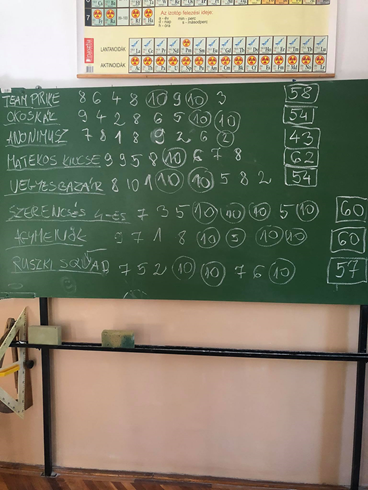 Az izotóp felezési ideje
LANTANOIDÁK
AKTINOIDÁK
TEAM PIRIKE 8 6 4 8 10 9 10 3 58
OKOSKÁK 9 4 2 8 6 5 10 10 54
ANONIMUSZ 7 8 1 8 9 2 6 2 43
MATEKOS KINCSE 9 9 5 8 10 6 7 8 62
VEGYESGAZÁR 8 10 1 10 10 5 8 2 54
SZERENCSÉS 4-ES 7 3 5 10 10 10 5 10 60
AGYMENŐK 9 7 1 8 10 5 10 10 60
RUSZKI SQUAD 7 5 2 10 10 7 6 10 57